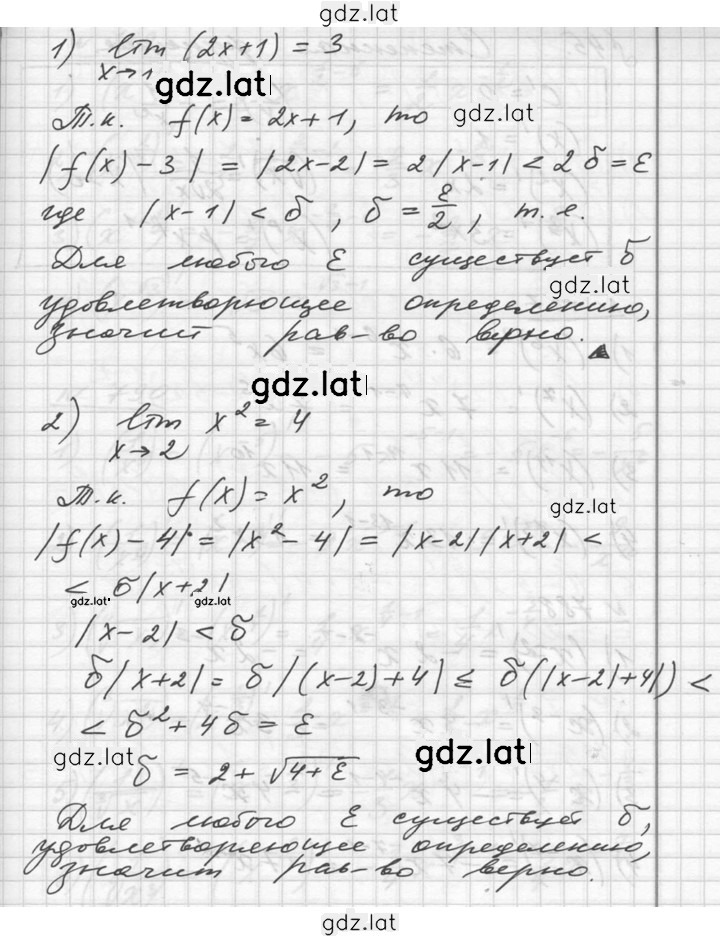 gdz.lat
1) lim (2x+1) = 3
x→1
gdz.lat
Т.к. f(x) = 2x+1, то gdz.lat
|f(x)-3| = |2x-2| = 2|x-1| < 2δ = ε
где |x-1| < δ, δ = ε/2, т.е.
Для любого ε существует δ
gdz.lat
удовлетворяющее определению,
значит рав-во верно. ▲
gdz.lat
2) lim x² = 4
x→2
Т.к. f(x) = x², то gdz.lat
|f(x)-4| = |x²-4| = |x-2||x+2| <
< δ|x+2|
gdz.lat gdz.lat
|x-2| < δ
δ|x+2| = δ|(x-2)+4| ≤ δ(|x-2|+4|) <
< δ²+4δ = ε
gdz.lat gdz.lat
δ = 2 + √4+ε
Для любого ε существует δ,
удовлетворяющее определению,
значит рав-во верно.
gdz.lat